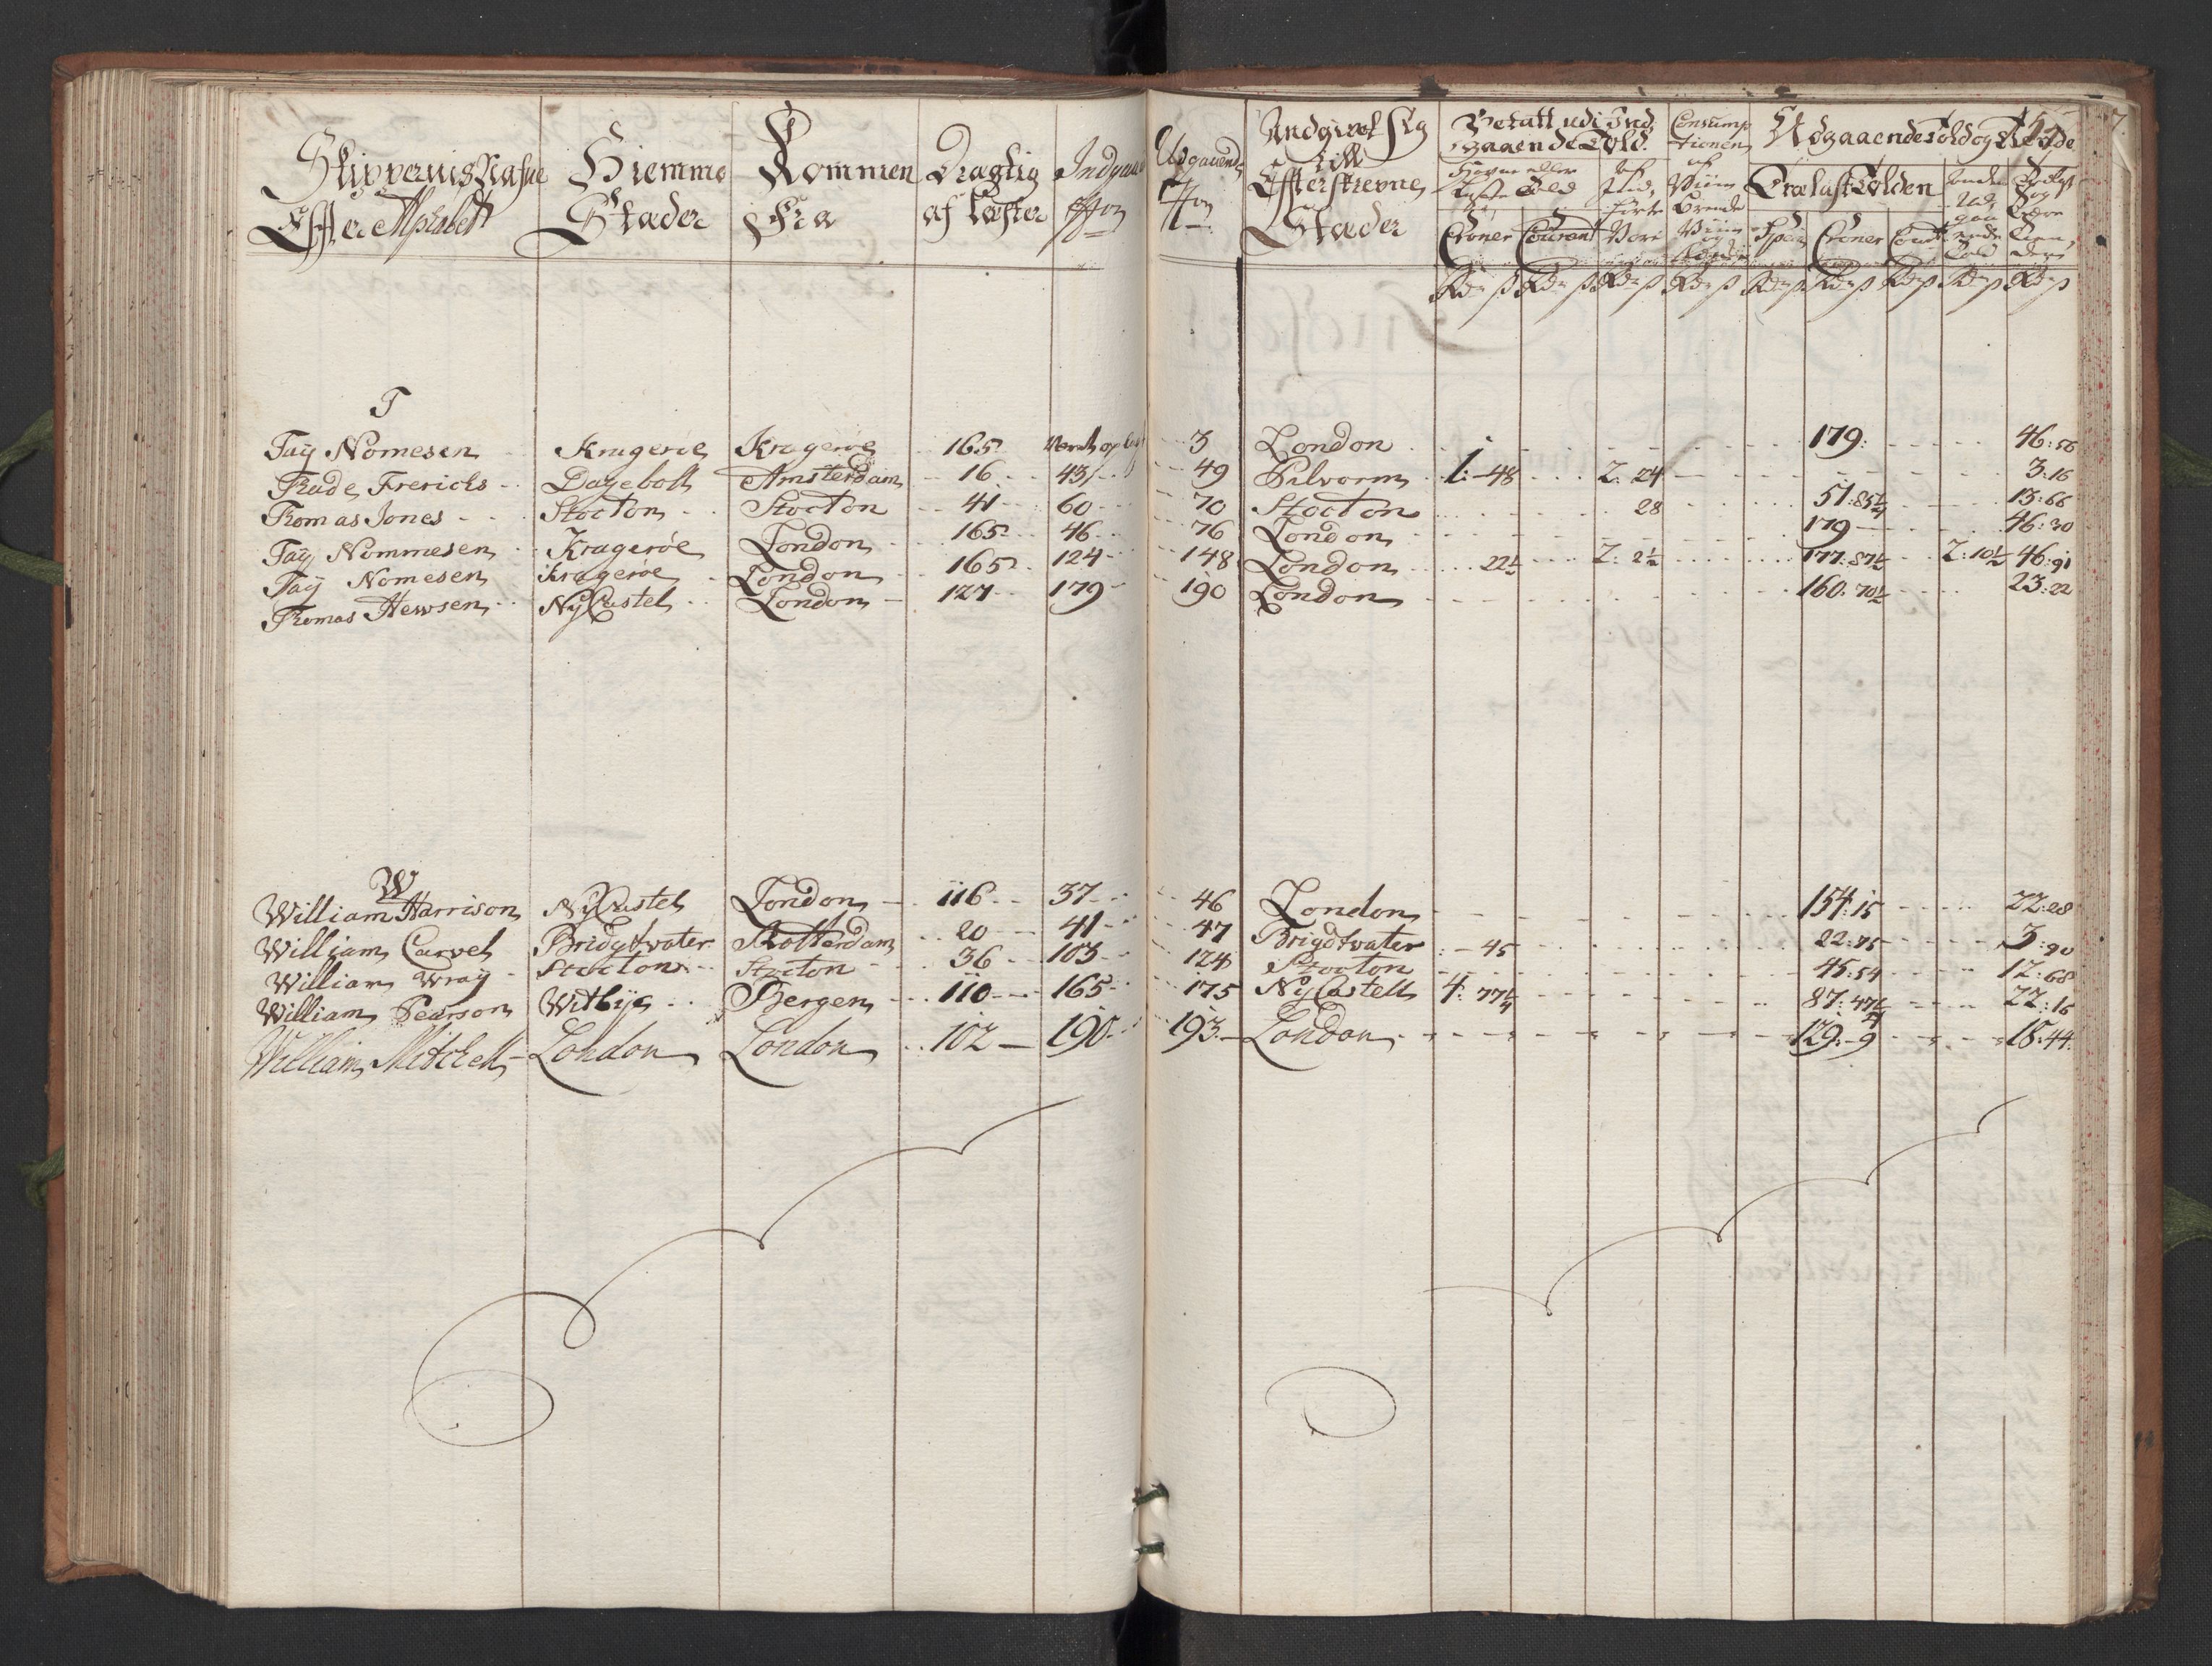 Skippernis Nafne Efter Alphabeth | Hiemme Stæder | Kommen Fra | Drægtig af Læster | Indgaaende No | Udgaaende No | Andgivet sig till Efterskrevne Stæder | Betalt udi Indgaaende Told. | Consumptionen af Viin Brende Viin | Udgaaende Told og
Havne eller | Told | Trælast Tolden
Croner | Courant | Spec | Croner | Cour
Rdr ß | Rdr ß | Rdr ß | Rdr ß | Rdr ß | Rdr ß | Rdr ß | Rdr ß | Rdr ß
T
Taÿ Nomesen | Kragerøe | Kragerøe | 165 | | 3 | London | 179: | 46:56
Frerichs | Dageboll | Amsterdam | 16 | 43 | 49 | Pilvorm | 1:-48 | 2:24 | 3:16
Thomas Jones | Stocton | Stocton | 41 | 60 | 70 | Stocton | 28 | 51:85¼ | 13:66
Taÿ Nommesen | Kragerøe | London | 165 | 46 | 76 | London | 179 | 46:30
Taÿ Nomesen | Kragerøe | London | 165 | 124 | 148 | London | 22½ | 2:2½ | 177:87½ | 2:10½ | 46:91
Thomas Hewsen | NyCastel | London | 127 | 179 | 190 | London | 160:70½ | 23:22
W
William Harrison | NyCastel | London | 116 | 37 | 46 | London | 154:15 | 22:28
William Carvel | Bridgtwater | Rotterdam | 20 | 41 | 47 | Brigdtwater | 45 | 22:75 | 3:90
William Wraÿ | Stocton | Stocton | 36 | 103 | 124 | Stocton | 45:54 | 12:68
William Pearson | Witbÿe | Bergen | 110 | 165 | 175 | NyCastell | 4:77¼ | 87:47¼ | 22:16
William Mitchell | London | London | 102 | 190 | 193 | London | 129:-9 | 18:44